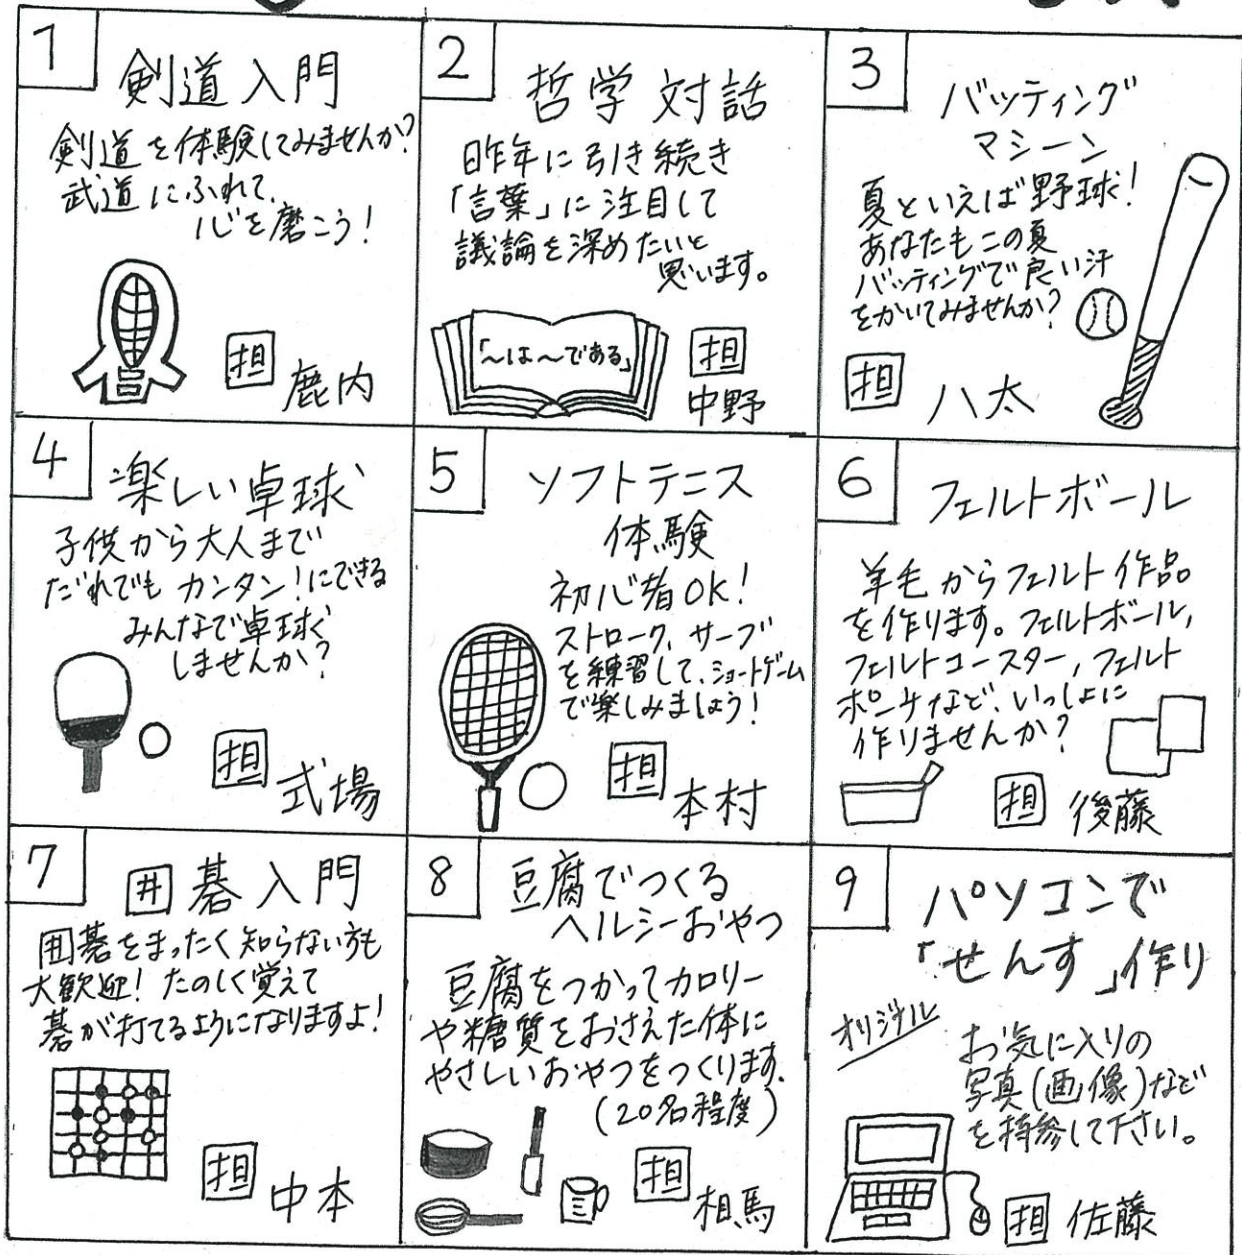 1
剣道入門
剣道を体験してみませんか?
武道にふれて、
心を磨こう!
担
鹿内
2
哲学対話
昨年に引き続き
「言葉」に注目して
議論を深めたいと
思います。
「〜は〜である」
担
中野
3
バッティング
マシーン
夏といえば野球!
あなたもこの夏
バッティングで良い汗
をかいてみませんか?
担
八太
4
楽しい卓球
子供から大人まで
だれでもカンタン!にできる
みんなで卓球
しませんか?
担
式場
5
ソフトテニス
体験
初心者OK!
ストローク、サーブ
を練習して、ショートゲーム
で楽しみましょう!
担
本村
6
フェルトボール
羊毛からフェルト作品
を作ります。フェルトボール,
フェルトコースター,フェルト
ポーチなど、いっしょに
作りませんか?
担
後藤
7
囲碁入門
囲碁をまったく知らない方も
大歓迎!たのしく覚えて
碁が打てるようになりますよ!
担
中本
8
豆腐でつくる
ヘルシーおやつ
豆腐をつかってカロリー
や糖質をおさえた体に
やさしいおやつをつくります.
(20名程度)
担
相馬
9
パソコンで
「せんす」作り
オリジナル
お気に入りの
写真(画像)など
を持参して下さい。
担
佐藤